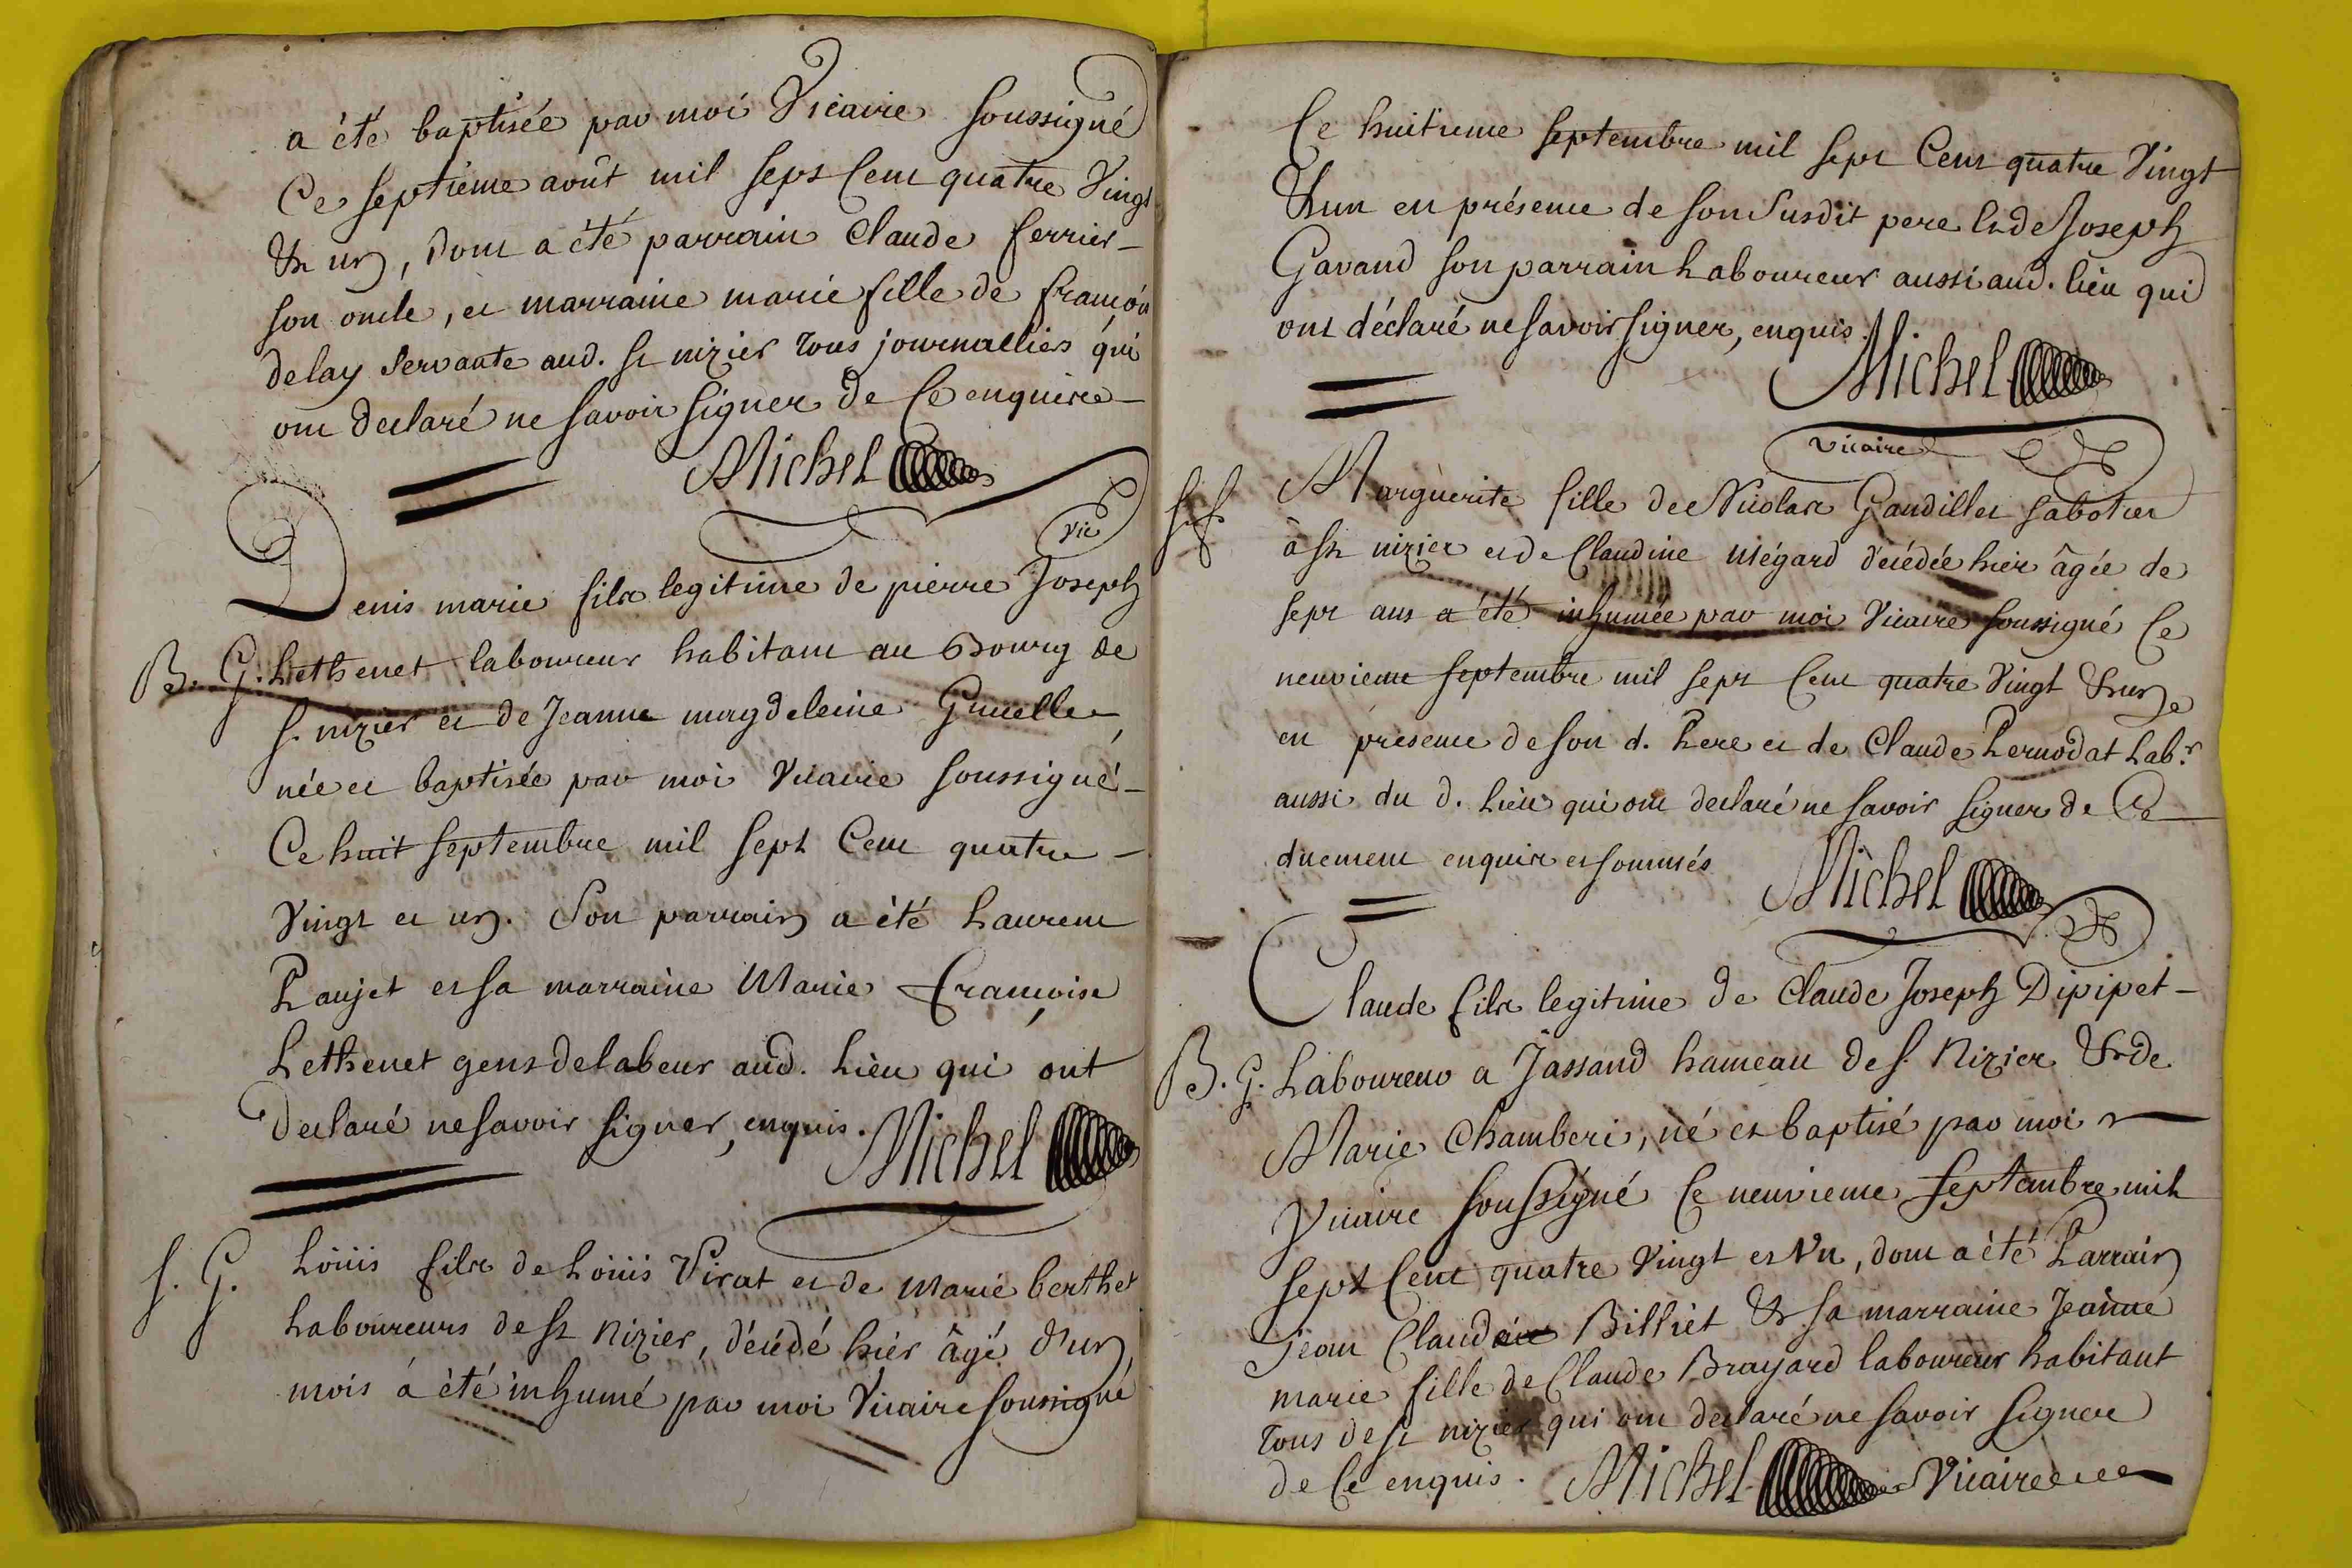 a été baptisée par moi Vicaire soussigné
Ce septieme août mil sept Cent quatre Vingt
& un, dont a été parrain Claude ferrier
son oncle, et marraine marie fille de françois
delay servante aud. St nizier tous journalliers qui
ont declaré ne savoir signer de Ce enquis
Michel
Vic
Denis marie fils legitime de pierre Joseph
B. G. Lethenet laboureur habitant au Bourg de
S. nizier et de Jeanne magdeleine
née et baptisée par moi Vicaire soussigné
Ce huit septembre mil sept Cent quatre
Vingt et un. Son parrain a été Laurent
Paujet et sa marraine Marie françoise
Lethenet gens de labeur aud. Lieu qui ont
declaré ne savoir signer, enquis.
Michel
S. G. Loüis fils de Loüis Virat et de marie berthet
Laboureurs de St Nizier, décédé hier âgé d'un
mois a été inhumé par moi Vicaire soussigné
Ce huitieme septembre mil sept Cent quatre Vingt
& un en présence de son susdit pere & de Joseph
Gavand son parrain Laboureur aussi aud. lieu qui
ont déclaré ne savoir signer, enquis.
Michel
Vicaire
Marguerite fille de Nicolas Gaudillet sabotier
à St nizier et de Claudine Mégard décédée hier âgée de
sept ans a été inhumée par moi Vicaire soussigné Ce
neuvieme septembre mil sept Cent quatre Vingt & un
en présence de son d. Pere et de Claude Pernodat Labr
aussi du d. Lieu qui ont declaré ne savoir signer de Ce
duement enquis et sommés
Michel
Claude fils legitime de Claude Joseph Dipipet
B. G. Laboureur a Jassand hameau de S. Nizier & de
Marie Chamberi, né et baptisé par moi
Vicaire soussigné Ce neuvieme septembre mil
sept Cent quatre Vingt et Un, dont a été Parrain
Jean Claude Billiet & sa marraine Jeanne
marie fille de Claude Brayard laboureur habitant
tous de St nizier qui ont declaré ne savoir signer
de Ce enquis. Michel Vicaire